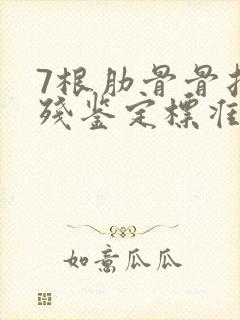 7根肋骨骨
残鉴定标准
如意瓜瓜